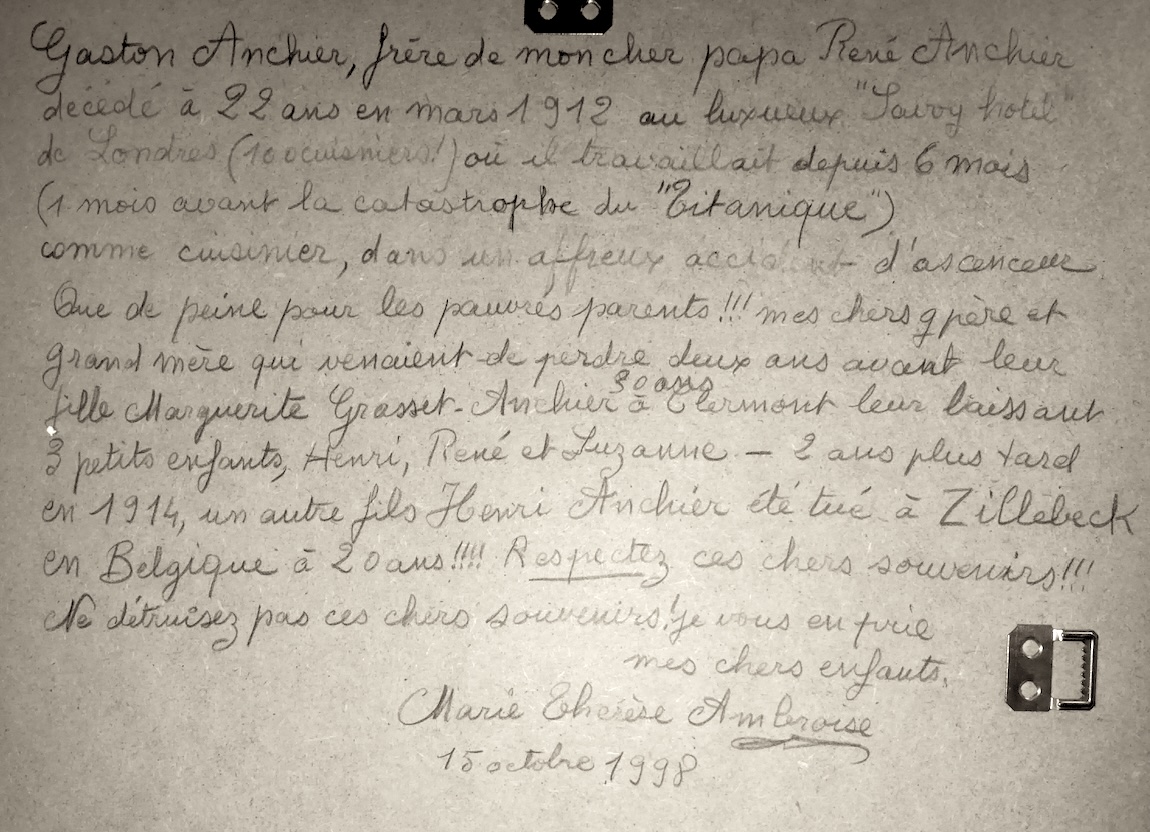 Gaston Anchier, frère de mon cher papa René Anchier
décédé à 22 ans en mars 1912 au luxueux "Savoy hotel"
de Londres (100 cuisiniers!) où il travaillait depuis 6 mois
(1 mois avant la catastrophe du "Titanique")
comme cuisinier, dans un affreux accident d'ascenceur
Que de peine pour les pauvres parents!!! mes chers g père et
grand mère qui venaient de perdre deux ans avant leur
30 ans
fille Marguerite Grasset-Anchier à Clermont leur laissant
3 petits enfants, Henri, René et Suzanne - 2 ans plus tard
en 1914, un autre fils Henri Anchier été tué à Zillebeck
en Belgique à 20 ans!!!! Respectez ces chers souvenirs!!!
Ne détruisez pas ces chers souvenirs! je vous en prie
mes chers enfants.
Marie Thérèse Ambroise
15 octobre 1998